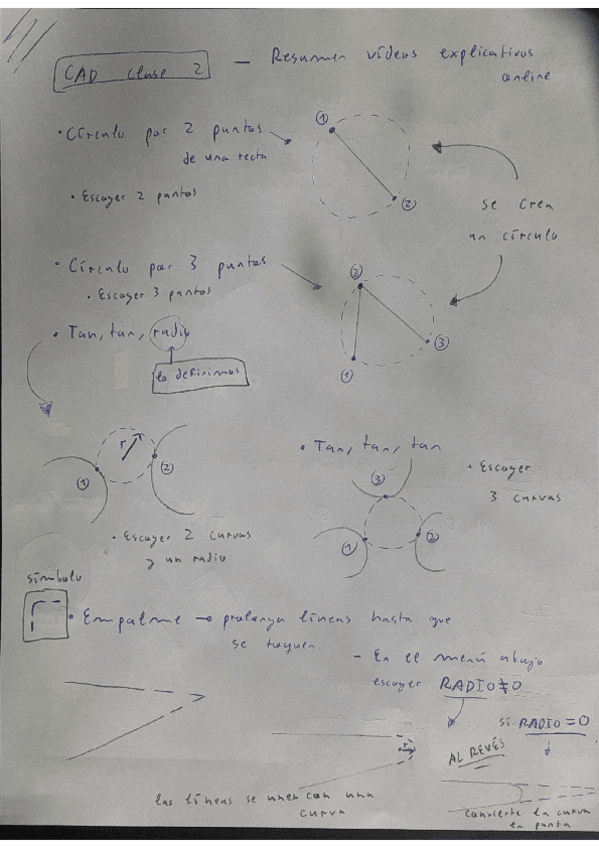 CAD clase 2 — Resumen vídeos explicativos
online
• Círculo por 2 puntos
de una recta
• Escoger 2 puntos
1
2
se crea
un círculo
• Círculo por 3 puntos
• Escoger 3 puntos
2
3
1
• Tan, tan, radio
lo definimos
r
1
2
• Escoger 2 curvas
y un radio
• Tan, tan, tan
• Escoger
3 curvas
3
1
2
símbolo
• Empalme → prolonga líneas hasta que
se toquen
- En el menú abajo
escoger RADIO≠0
si RADIO=0
AL REVÉS
r
las líneas se unen con una
curva
convierte la curva
en punta